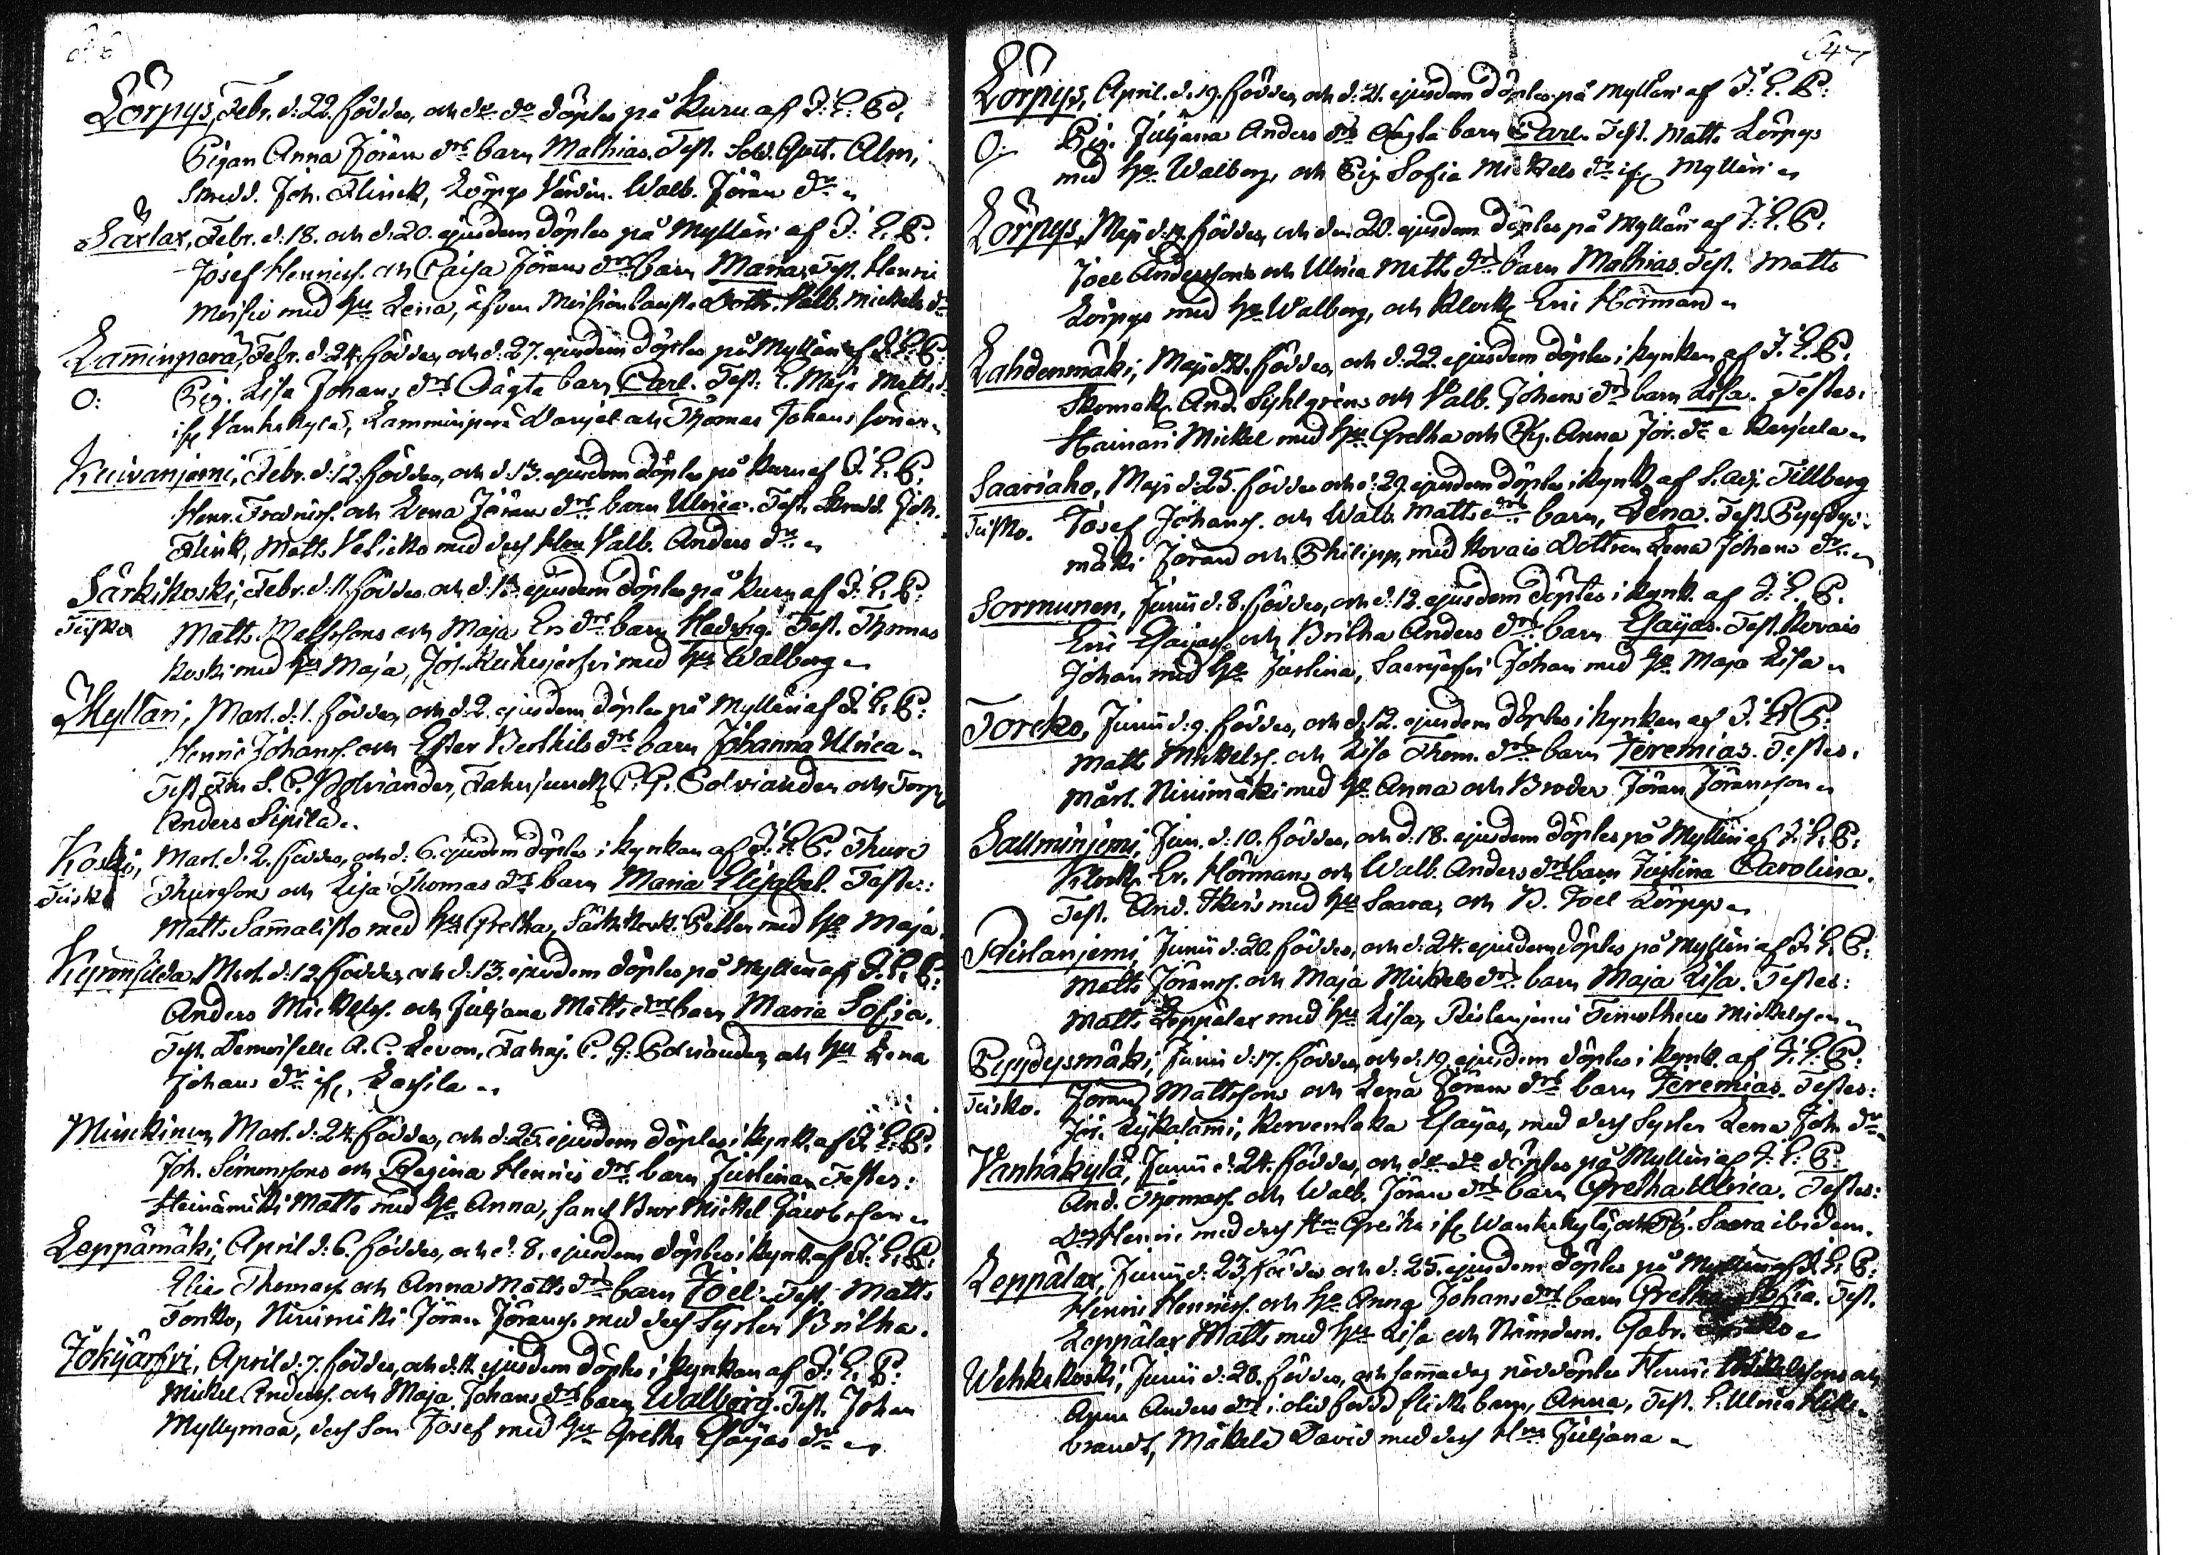 Lörpys, Febr. d: 22. föddes, och do do döptes på Kuru af J. E. P.
Pigan Anna Jörans drs barn Mathias. Test. Sold. Gust. Alm,
Smedd. Joh. Flinck, Lörpys Värdin. Walb. Jörans dr
Särlax, Febr. d: 18. och d: 20. ejusdem döptes på Mylläri af J. E. P.
Josef Henrichs. och Caisa Jörans drs barn Maria, Test. Henric
med hu Lena, äfven Dottr. Valb. Mickels dr
Lamminperä, Febr. d: 24. föddes, och d: 27. ejusdem döptes på Mylläri af J. E. P.
O: Pig. Lisa Johans drs Oägta barn Carl. Test: E. Maja Matts d.
ifr. Vanhakylä, Lamminperä Danjel och Thomas Johans söner
Kuivanjemi, Febr. d: 12. föddes, och d: 13. ejusdem döptes på Kuru af J. E. P.
Henr. Fredrics. och Lena Jörans drs barn Ulrica. Test. Smedd. Joh.
Flink, Matts med dess Hu Valb. Anders dr
Särkikoski, Febr. d: 11. föddes, och d: 13. ejusdem döptes på Kuru af J. E. P.
Teisko Matts Matssons och Maja Ers drs barn Hedvig. Test. Thomas
Koski med hu Maja, Jos. med hu Walborg
Mylläri, Mart. d: 1. föddes, och d: 2. ejusdem döptes på Mylläri af J. E. P.
Henric Johans. och Ester Berthils drs barn Johanna Ulrica
Test. Fru S. C. Polviander, P. G. Polviander och Torp.
Anders Sipilä
Koski, Mart. d: 2. föddes, och d: 6. ejusdem döptes i kyrkan af J. E. P. Thure
Teisko Thuresons och Lisa Thomas drs barn Maria Elisabet. Testes:
Matts Sammalisto med hu Gretha, Petter med hu Maja.
Mart. d: 12. föddes, och d: 13. ejusdem döptes på Mylläri af J. E. P.
Anders Mickels. och Juljana Matts drs barn Maria Sofia.
Test. Demoiselle A. C. Levon, P. G. Polviander, och hu Lena
Johans dr ifr. Lassila
Minckinen, Mart. d: 24. föddes, och d: 25. ejusdem döptes i kyrk. af J. E. P.
Joh. Simonssons och Regina Henrics drs barn Justina. Testes:
Heinämäki Matts med hu Anna, samt Mickel Jacobsson
Leppämäki, April d: 6. föddes, och d: 8. ejusdem döptes i kyrk. af J. E. P.
Elias Thomass. och Anna Matts drs barn Joel. Test. Matts
Torcko, Niinimäki Jöran Jörans. med dess Syster Britha.
Jokijärfvi, April d: 7. föddes, och d: 11. ejusdem döptes i kyrkan af J. E. P.
Mickel Anderss. och Maja Johans drs barn Walborg. Test. Johan
Myllymaa, dess Son Josef med hu Gretha Esaijas dr
547
Lörpys, April. d: 19. föddes, och d: 21. ejusdem döptes på Mylläri af J. E. P.
O: Pig. Juljana Anders drs Oägta barn Carl. Test. Matts Lörpys
med hu Walborg, och Pig. Sofia Mickels dr ifr. Mylläri
Lörpys, Maji d: föddes, och den 20. ejusdem döptes på Mylläri af J. E. P.
Joel Anderssons och Ulrica Matts drs barn Mathias. Test. Matts
Lörpys med hu Walborg, och Klock. Eric Hörman
Lahdenmäki, Maji d: 21. föddes, och d: 22. ejusdem döptes i kyrkan af J. E. P.
Skomak. And. Sjhlgréns och Valb. Johans drs barn Lisa. Testes:
Hainari Mickel med hu Gretha och Pig. Anna Jör. dr
Saariaho, Maji d: 25. föddes och d: 29. ejusdem döptes i kyrk. af S. adj. Tillberg
Teisko. Josef Johans. och Walb. Matts drs barn, Lena. Test. Pyydys-
mäki Jöran och Philipp, med Kovais Dottren Lena Johans dr
Sormunen, Junii d: 8. föddes, och d: 12. ejusdem döptes i kyrk. af J. E. P.
Eric Esaijas. och Britha Anders drs barn Esaijas. Test. Kovais
Johan med hu Justina, Saarijärfvi Johan med hu Maja Lisa
Torcko, Junii d: 9. föddes, och d: 12. ejusdem döptes i kyrkan af J. E. P.
Matts Mickels. och Lisa Thom. drs barn Jeremias. Testes:
Mårt. Niinimäki med hu Anna och Broder Jöran Jöransson
Sallminjemi, Jun. d: 10. föddes, och d: 18. ejusdem döptes på Mylläri af J. E. P.
Klock. Er. Hörmans och Walb. Anders drs barn Justina Carolina.
Test. And. med hu Saara, och B. Joel Lörpys
Ristanjemi, Junii d: 20. föddes, och d: 24. ejusdem döptes på Mylläri af J. E. P.
Matts Jörans. och Maja Mickels drs barn Maja Lisa. Testes:
Matts Leppälax med hu Lisa, Ristanjemi Timotheus Mickelsson
Pyydysmäki, Junii d: 17. föddes, och d: 19. ejusdem döptes i kyrk. af J. E. P.
Teisko. Jöran Mattssons och Lena Jörans drs barn Jeremias. Testes:
Jör. Lykalammi, Kervenlaka Esaijas, med dess Syster Lena Joh. dr
Vanhakylä, Junii d: 24. föddes, och do do döptes på Mylläri af J. E. P.
And. Thomass. och Walb. Jörans drs barn Gretha Ulrica. Testes:
Henric med dess Hu Gretha ifr. Wanhakylä och Pig. Saara ibidem.
Leppälax, Junii d: 23. föddes och d: 25. ejusdem döptes på Mylläri af J. E. P.
Henric Henrics. och hu Anna Johans drs barn Gretha Sofia. Test.
Leppälax Matts med hu Lisa och Nämdem. Gabr.
Wehkakoski, Junii d: 28. föddes, och samma dag nöddöptes Henric Mickelssons och
Anna Anders drs i olid född flicke barn, Anna, Test. E. Ulrica Hille-
brandt, Mäkelä David med dess Hu Juljana